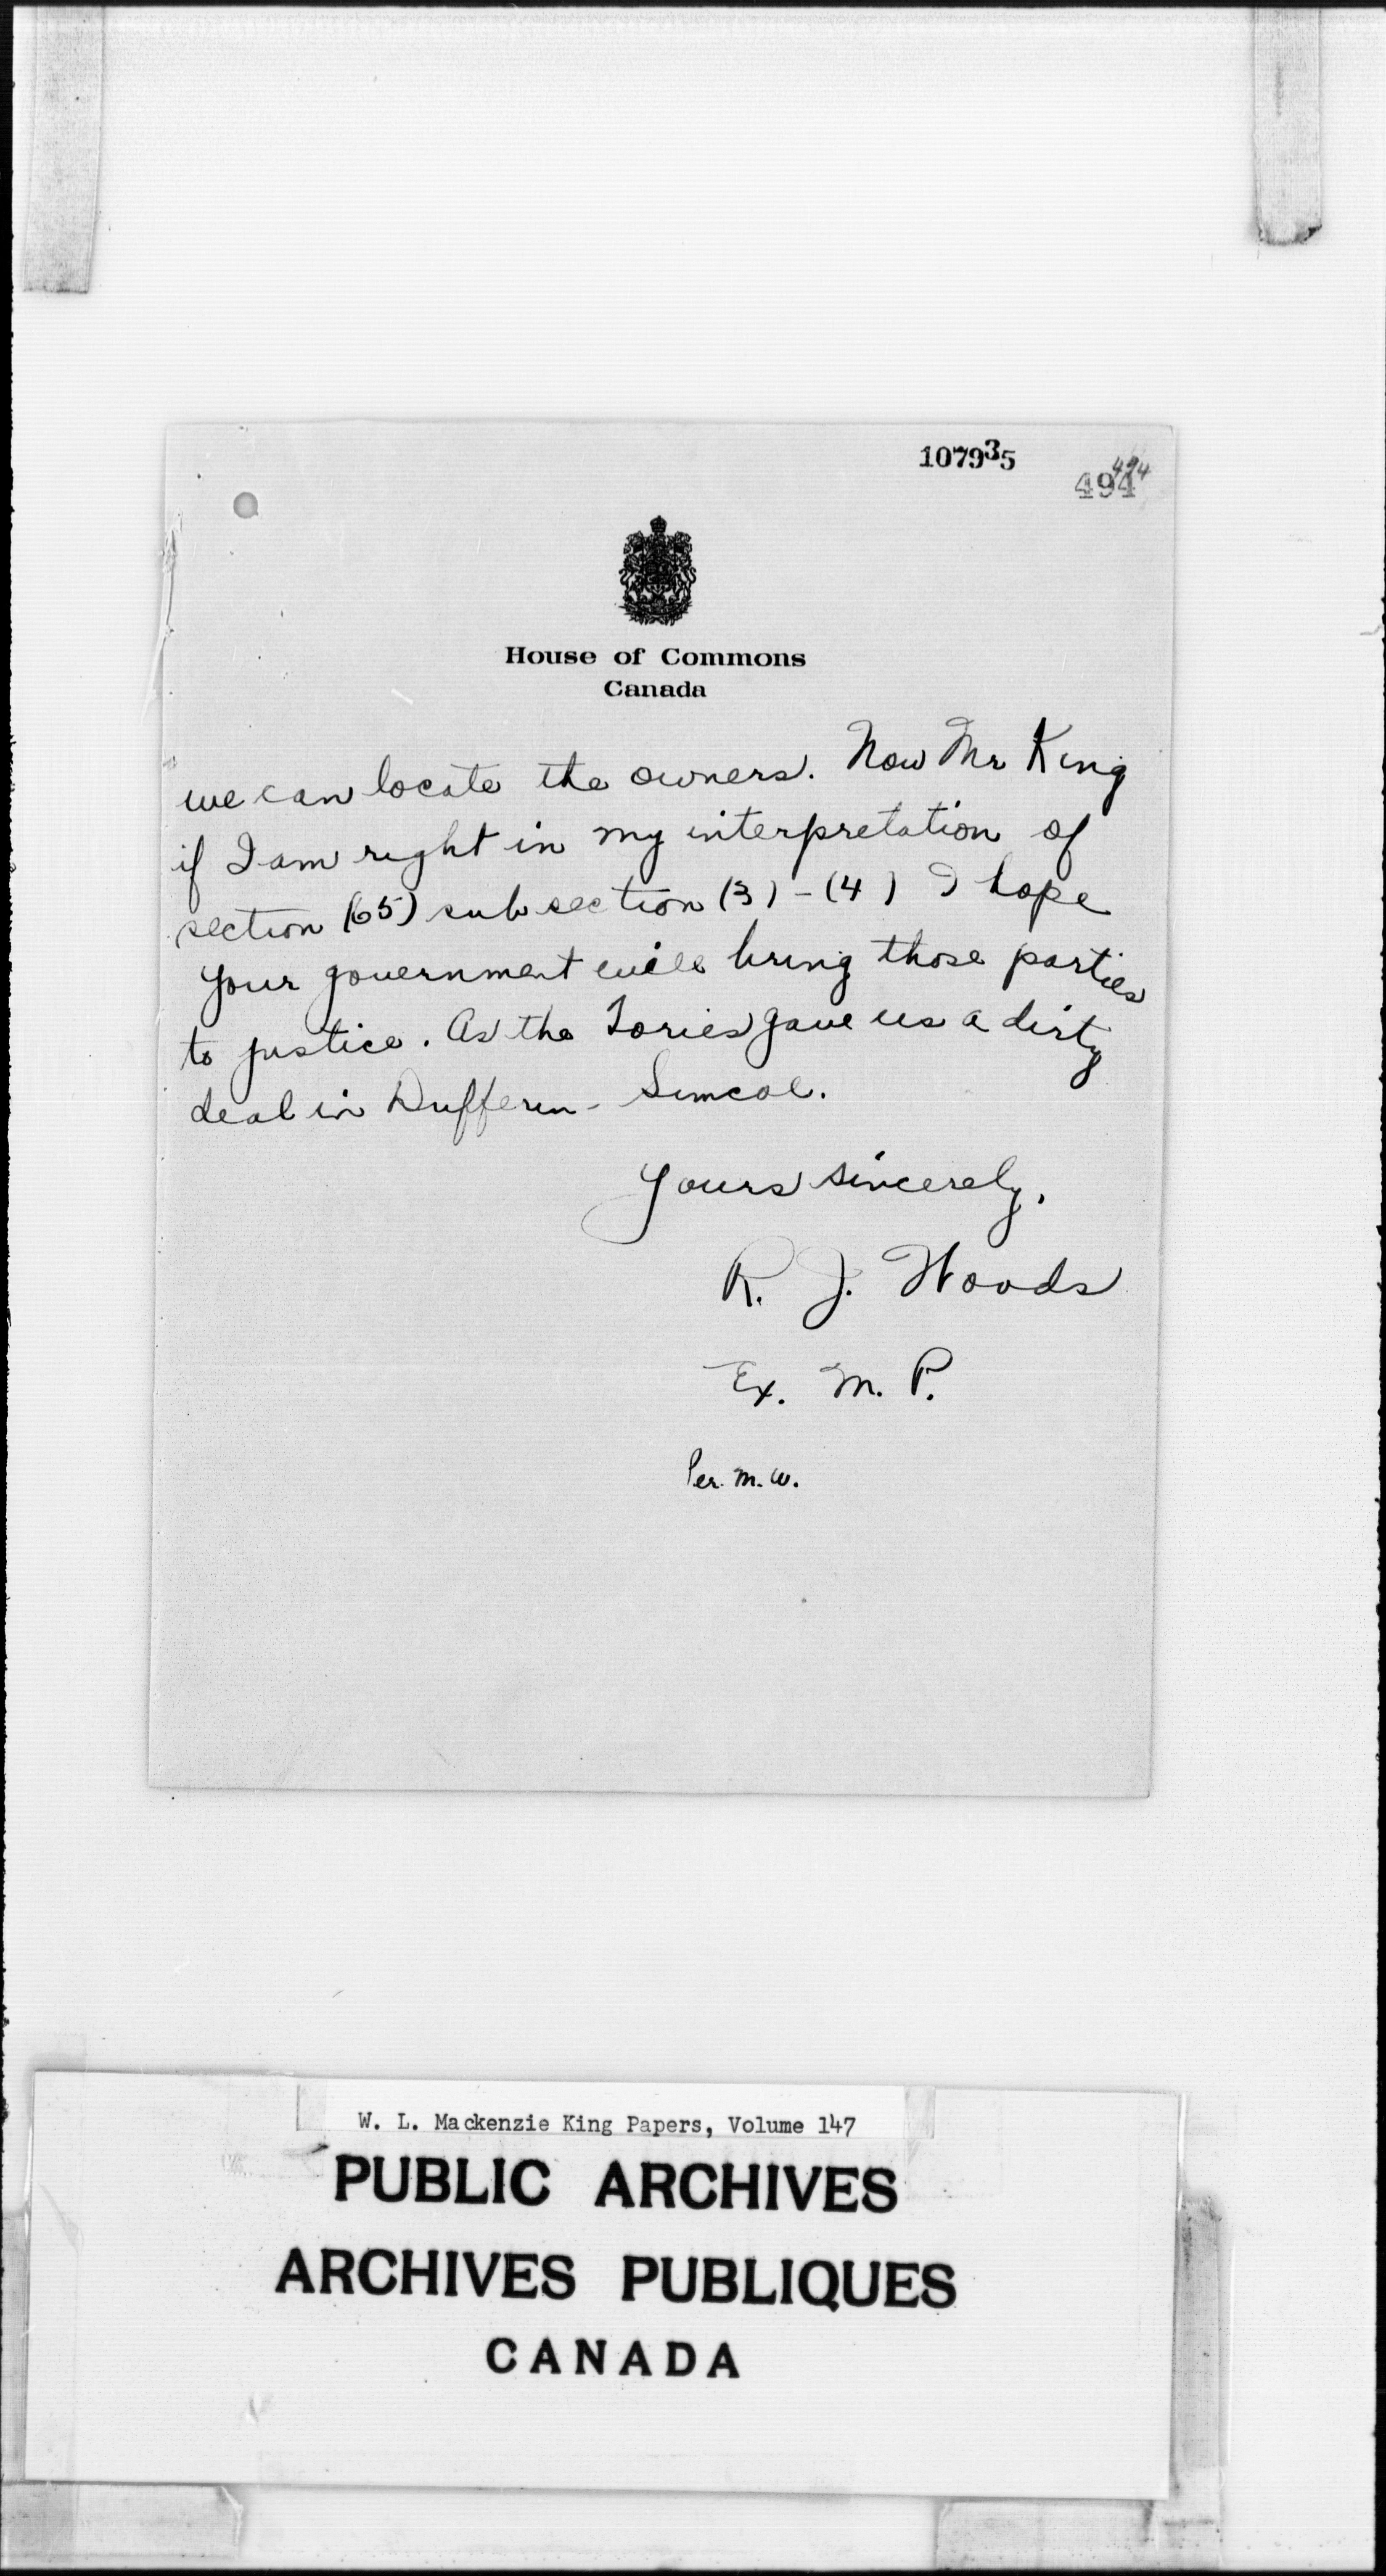 107935
494
494
House of Commons
Canada
we can locate the owners. Now Mr King
if I am right in my interpretation of
section (65) subsection (3) - (4) I hope
your government will bring those parties
to justice. As the Tories gave us a dirty
deal in Dufferin - Simcoe.
Yours sincerely,
R. J. Woods
Ex. M. P.
Per. M. W.
W. L. Mackenzie King Papers, Volume 147
PUBLIC ARCHIVES
ARCHIVES PUBLIQUES
CANADA